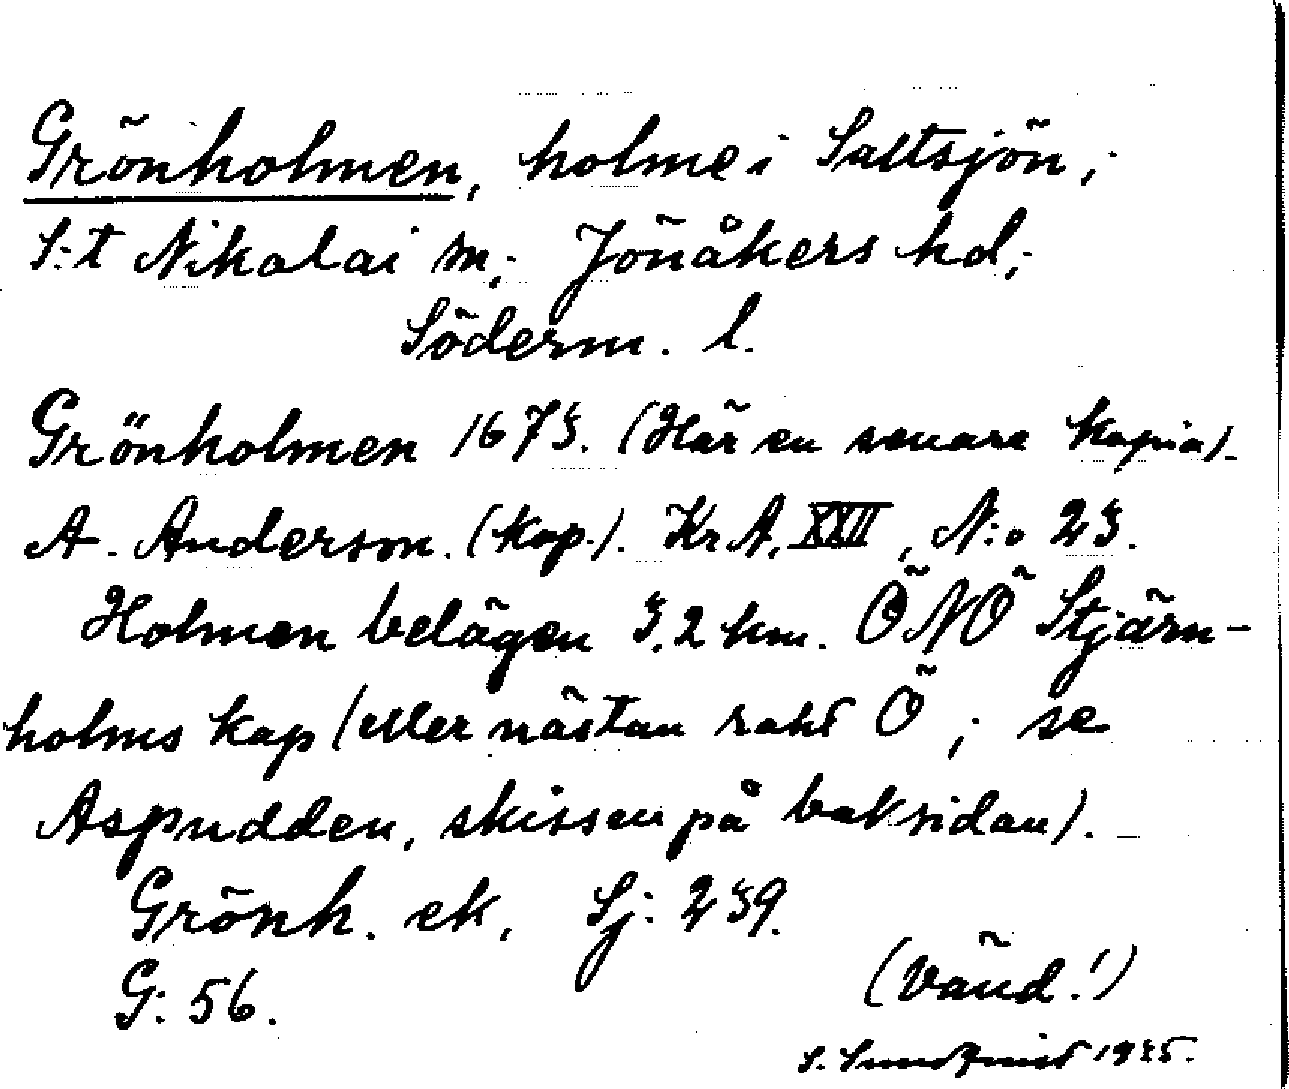 Grönholmen, holme i Saltsjön,
S:t Nikolai sn, Jönåkers hd,
Söderm. l.
Grönholmen 1673. (Här en senare kopia).
A. Anderson. (Kop.). KrA, XXII, N:o 23.
Holmen belägen 3.2 km. ÖNÖ Stjärn-
holms kap (eller nästan rakt Ö; se
Aspudden, skissen på baksidan). –
Grönh. ek. Sj: 239.
G: 56.
(Vänd!)
S. Sundqvist